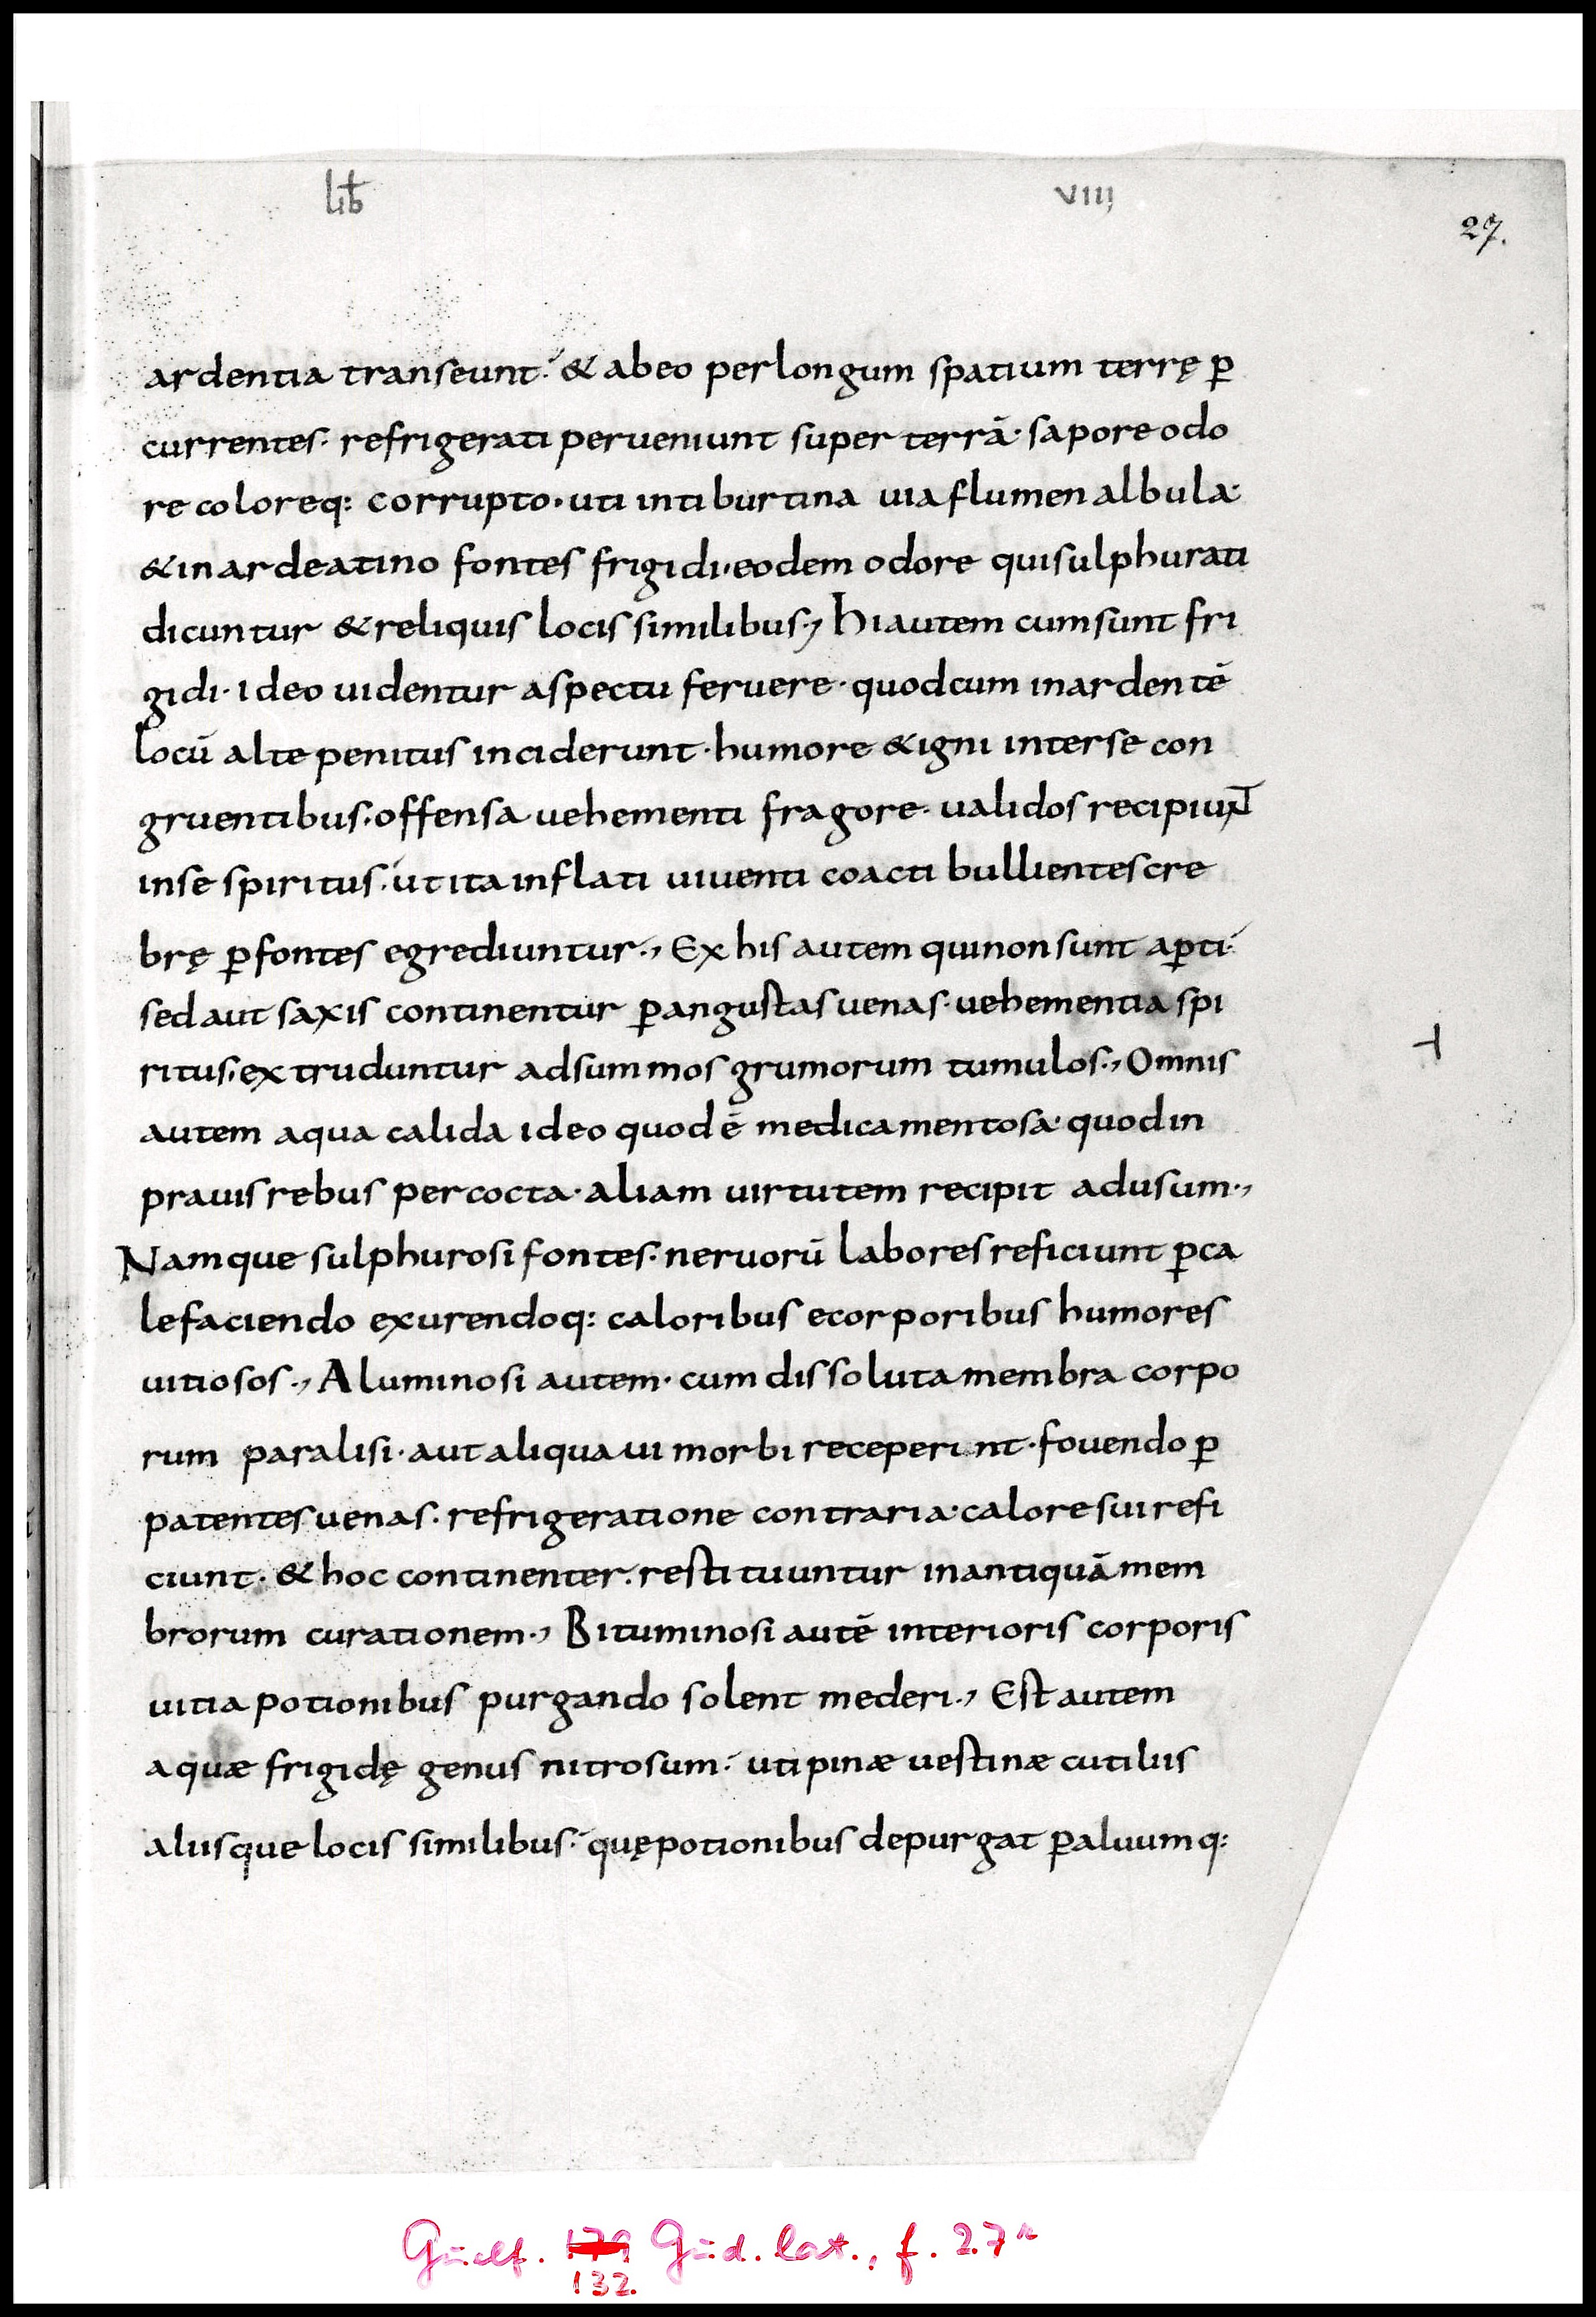 lib VIII
27.
ardentia transeunt. & abeo perlongum spatium terrę ꝑ
currentes. refrigerati perueniunt super terrā. sapore odo
re coloreq: corrupto. uti intiburtina uia flumen albula.
& inardeatino fontes frigidi. eodem odore quisulphurati
dicuntur & reliquis locis similibus., Hi autem cum sunt fri
gidi. ideo uidentur aspectu feruere. quodcum inardentē
locū alte penitus inciderunt. humore & igni interse con
gruentibus. offensa uehementi fragore. ualidos recipiunt
inse spiritus. ut ita inflati uiuenti coacti bullientes cre
brę ꝑ fontes egrediuntur., Ex his autem qui non sunt aꝑti.
sed aut saxis continentur ꝑ angustas uenas. uehementia spi
ritus. extruduntur adsummos grumorum tumulos., Omnis
autem aqua calida ideo quod ē medicamentosa. quod in
prauis rebus percocta. aliam uirtutem recipit adusum.,
Namque sulphurosi fontes. neruorū labores reficiunt ꝑca
lefaciendo exurendoq: caloribus ecorporibus humores
uitiosos., Aluminosi autem. cum dissoluta membra corpo
rum paralisi. aut aliqua ui morbi receperint. fouendo ꝑ
patentes uenas. refrigeratione contraria. calore sui refi
ciunt. & hoc continenter. restituuntur inantiquā mem
brorum curationem., Bituminosi autē interioris corporis
uitia potionibus purgando solent mederi., Est autem
aquæ frigidę genus nitrosum. uti pinæ uestinæ cutiliis
aliisque locis similibus. quę potionibus depurgat ꝑ aluumq:
Guelf. 179 Gud. lat., f. 27r
132.